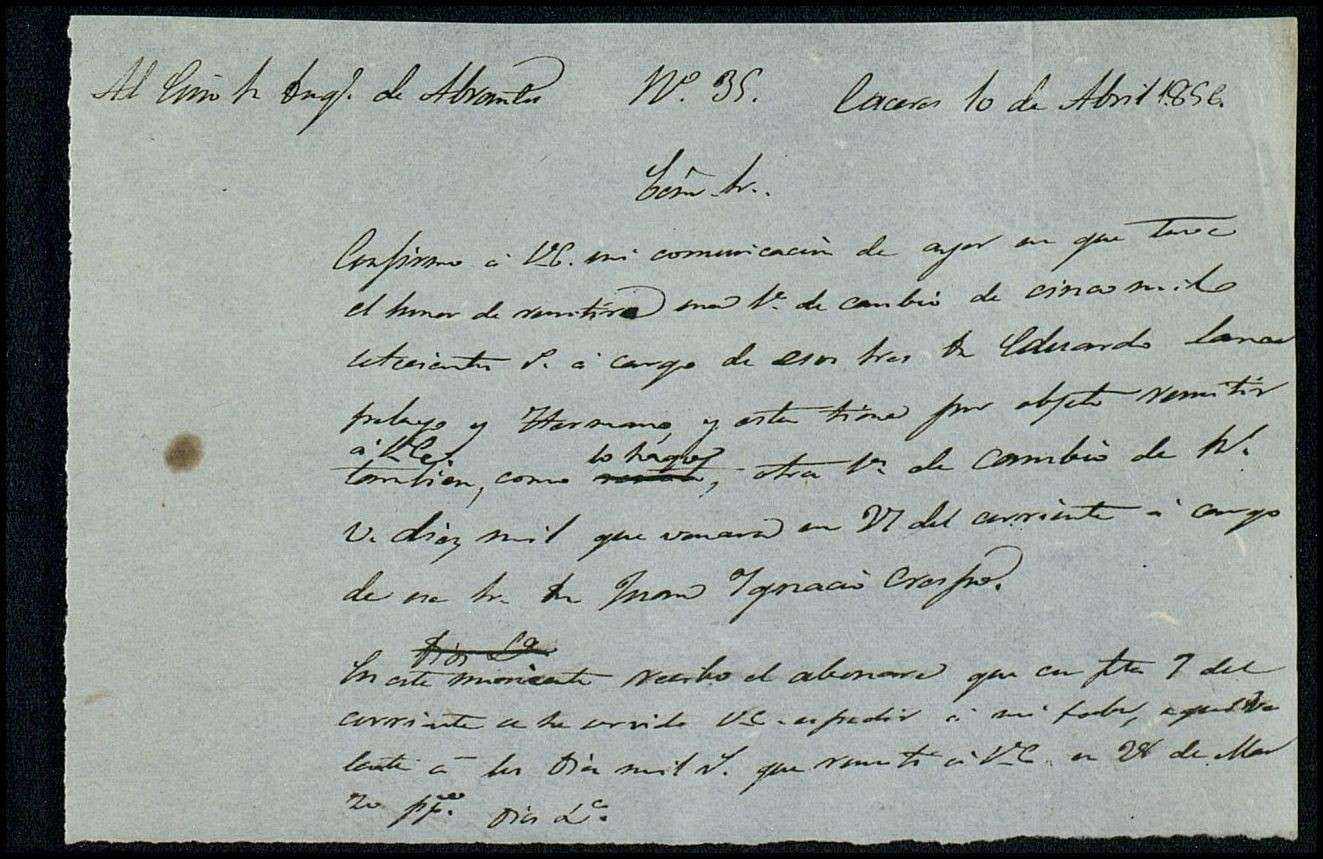 Al Exmo Sr Duq.e de Abrantes Nº. 35. Caceres 10 de Abril 185
Exmo. Sr.
Confirmo á V.E. mi comunicación de ayer en que tuve
el honor de remitir una l.ª de cambio de cinco mil
á cargo de esos Sres Dn Eduardo
y Hermano, y esta tiene por objeto remitir
á V.E.
tambien, como lo hago, otra l.ª de cambio de R.s
V.n diez mil que vencerá en 27 del corriente á cargo
de ese Sr. Dn Juan Ignacio Crespo.
Dios G.e
En este momento recibo el abonaré que con fha 7 del
corriente se ha servido V.E. espedir á mi favor, equiva
lente á los diez mil r.s que remití á V.E. en 28 de Mar
zo pp.do Dios G.e